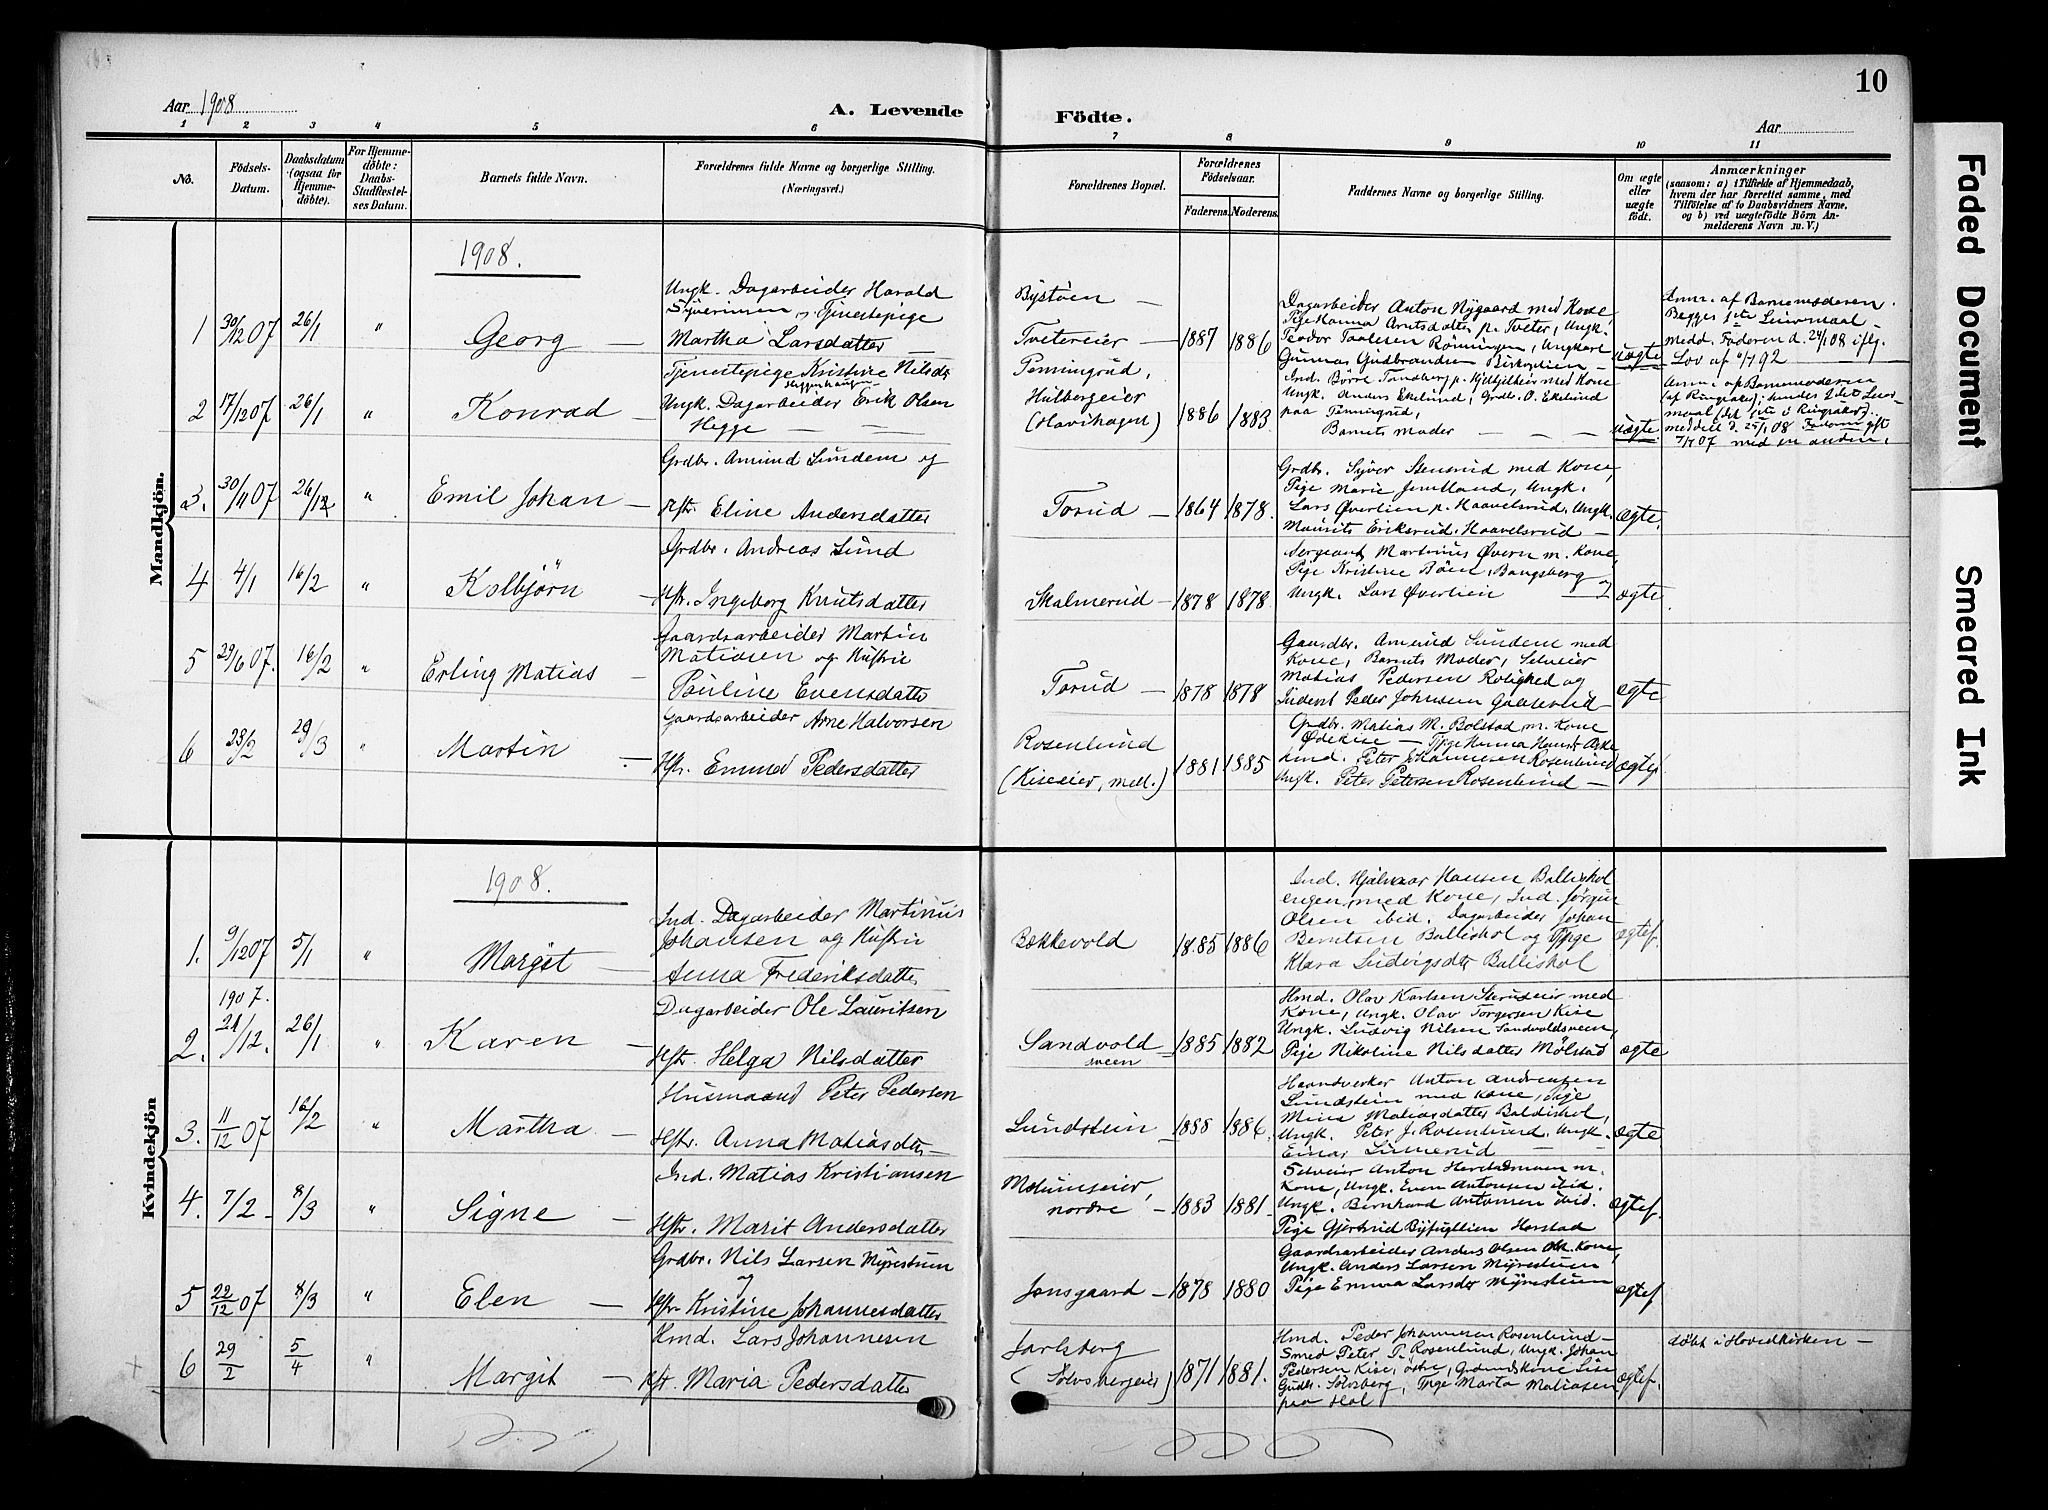 10
Aar 1908
A. Levende
Födte.
Aar
1 2 3 4 5 6 7 8 9 10 11
No.
Födsels-
Datum.
Daabsdatum
(ogsaa for
Hjemme-
döbte).
For Hjemme-
döbte:
Daabs-
Stadfæstel-
ses Datum.
Barnets fulde Navn.
Forældrenes fulde Navne og borgerlige Stilling.
(Næringsvei.)
Forældrenes Bopæl.
Forældrenes
Födselsaar.
Faderens. Moderens.
Faddernes Navne og borgerlige Stilling.
Om ægte
eller
uægte
født.
Anmærkninger
(saasom: a) i Tilfælde af Hjemmedaab,
hvom der har forrettet samme, med
Tilföielse af to Daabsvidners Navne.
og b) ved uægtefödte Börn An-
melderens Navn m. V.)
Mandkjön.
1908.
1 30/12 07 26/1 " Georg —
Ungk. Dagarbeider Harald
Syverinsen, Tjenestepige
Martha Larsdatter
Bystöen —
Tvetereier —
1887 1886
Dagarbeider Anton Nygaard med Kone,
Pige Hanna Arntsdatter p. Tveter, Ungk.
Teodor Paulsen Rönningen, Ungkarl
Gunnar Gudbrandsen Birkelien —
uægte
Anm. af Barnemoderen.
Begges 1ste Leiermaal
medd. Faderen d. 24/1 08 iflg.
Lov af 6/7 92
2 17/12 07 26/1 " Konrad —
Tjenestepige Kristine Nilsdr
Ungk. Dagarbeider Erik Olsen
Hegge — —
Penningrud,
Hulbergeier
(Havihagen)
1886 1883
Ind. Börre Tandberg p. med Kone
Ungk. Anders Ekelund, Grdbr. O. Ekelund
paa Penningrud,
Barnets Moder — — —
uægte
Anm. af Barnemoderen
(af Ringsaker); hendes 2det Leier-
maal (det 1ste i Ringsaker).
meddelt d. 25/1 08 Faderen gift
7/7 07 med en anden.
3. 30/11 07 26/12 " Emil Johan —
Grdbr. Amund Sundem og
Hstr. Eline Andersdatter
Torud —
1864 1878.
Grdbr. Syver Stensrud med Kone,
Pige Marie Jemtland, Ungk.
Lars Øverlien p. Haavelsrud, Ungk.
Maurits Erikerud, Haavelsrud —
ægte.
4 4/1 16/2 " Kolbjörn —
Grdbr. Andreas Lund
Hstr. Ingeborg Knutsdatter
Skalmerud —
1878 1878.
Sergeant Martinus Øvern m. Kone,
Pige Kristine Böen, Bangsberg og
Ungk. Lars Øverlien —
ægte.
5 29/6 07. 16/2 " Erling Matias —
Gaardsarbeider Martin
Matiasen og Hustru
Pauline Evensdatter
Torud —
1878 1878
Gaardbr. Amund Sundem med
Kone, Barnets Moder, Selveier
Matias Pedersen Rolighed og
Student Peder Johnsen —
ægte
6 23/2 29/3 " Martin —
Gaardsarbeider Arne Halvorsen
Hstr. Emma Pedersdatter
Rosenlund
(Kiseeier, mell.)
1881 1885
Grdbr. Matias M. Bolstad m. Kone
— Pige Hanna
Hmd. Peter Johannesen Rosenlund
Ungk. Peter Petersen Rosenlund —
ægtef.
Kvindekjön
1908.
1. 9/12 07 5/1 " Margit —
Ind. Dagarbeider Martinius
Johansen og Hustru
Anna Frederiksdatter
Bækkevold
1885 1886
Ind. Hjalmar Hansen Balliskol
engen, med Kone, Ind. Jörgen
Olsen ibid. Dagarbeider Johan
Berntsen Balliskol og Pige
Klara Ludvigsdtr Balliskol
ægtef.
1907.
2. 21/12. 26/1 " Karen —
Dagarbeider Ole Lauritsen
Hstr. Helga Nilsdatter
Sandvold —
sveen
1885 1882
Hmd. Olav Karlsen med
Kone, Ungk. Olav Torgersen Kise
Ungk. Ludvig Nilsen Sandvoldsveen,
Pige Nikoline Nilsdatter Mølstad
ægte
3. 11/12 07 16/2 " Martha —
Husmaand Peter Pedersen
Hstr. Anna Matiasdtr —
Lundstein —
1888 1886.
Haandverker Anton Andreassen
Lundstein med Kone, Pige
Mina Matiasdatter Baldishol,
Ungk. Peter J. Rosenlund, Ungk.
Einar — —
ægte
4. 7/2 — 8/3 " Signe —
Ind. Matias Kristiansen
Hstr. Marit Andersdatter
nordre —
1883 1881.
Selveier Anton m.
Kone, Ungk. Even Antonsen ibid.
Ungk. Bernhard Antonsen ibid.
Pige Gjertrud Byfuglien Horstad
ægtef.
5 22/12 07 8/3 " Elen —
Grdbr. Nils Larsen Myrestum
og
Hstr Kristine Johannesdatter
Jonsgaard —
1878 1880
Gaardsarbeider Anders Olsen m. Kone,
Ungk. Anders Larsen Myrestuen
Pige Emma Larsdtr Myrestuen
ægtef.
6 29/2 5/4 " Margit —
Hmd. Lars Johannesen
Hst. Maria Pedersdatter
Jarlsberg
(Solbergeier)
1871 1881.
Hmd. Peder Johannesen Rosenlund —
Smed Peter P. Rosenlund, Ungk. Johan
Pedersen Kise, östre, Grdmdskone Lise
Gudbr. Solberg, Pige Marta Matiasen
paa Hol
ægtef.
döbt i Hovedkirken —
Faded Document
Smeared Ink